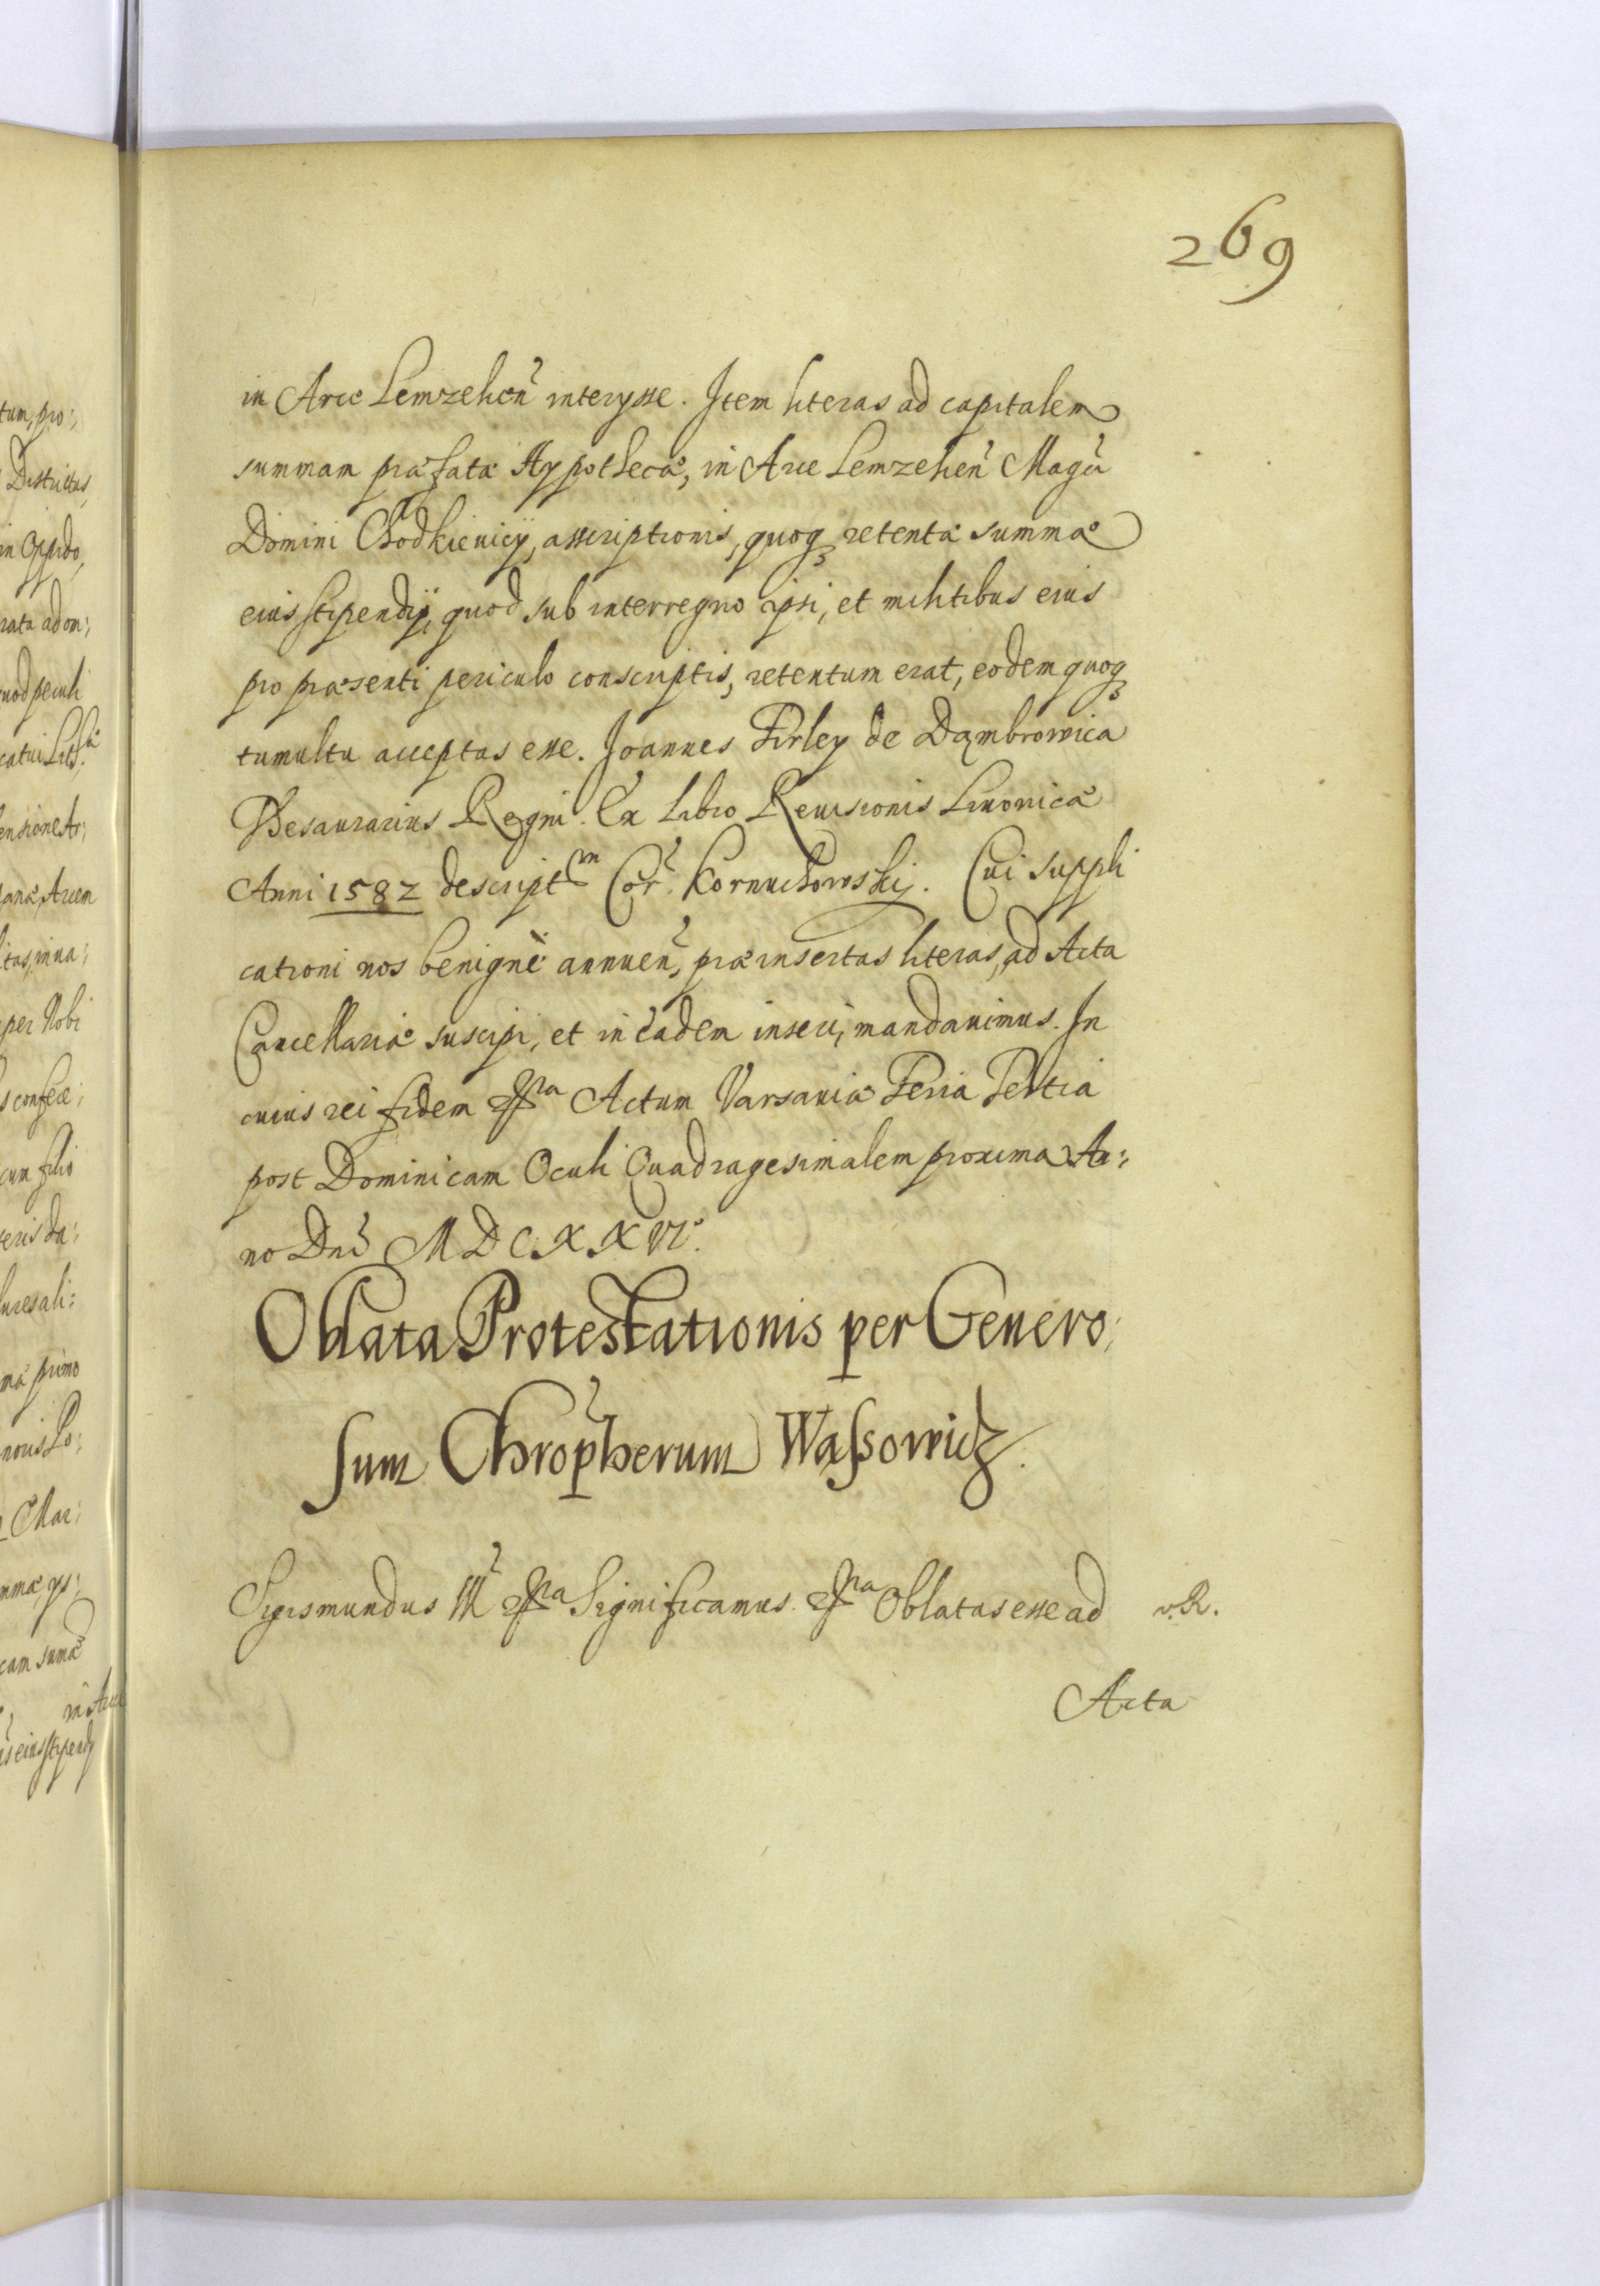 269
in Arce Lemzehen̄ interysse. Item literas ad capitalem
summam præfatæ Hypothecæ, in Arce Lemzehen̄ Magci
Domini Chodkieuicÿ, asscriptionis, quoq retentæ summæ
eius stipendÿ, quod sub interregno ipsi, et militibus eius
pro præsenti periculo conscriptis, retentum erat, eodem quoq
tumultu acceptas esse. Joannes Firley de Dąmbrowica
Thesaurarius Regni. Ex Libro Reuisionis Liuonicæ
Anni 1582 descriptm Cor. Kornuchowskj. Cui suppli
cationi nos benignè annuen̄, præinsertas literas, ad Acta
Cancellariæ suscipi, et in eadem inseri, mandauimus. In
cuius rei fidem &ra Actum Varsauiæ Feria Tertia
post Dominicam Oculi Quadragesimalem proxima An:
no Dni MDCXXVI.
Oblata Protestationis per Genero:
sum Chropherum Wassowicz.
Sigismundus III &ra Significamus. &ra Oblatas esse ad v.R.
Acta
tum, pro:
Districtus,
in Oppido,
rata ad on:
uod peculi
ensione Ar:
anæ Arcem
itas, in ua:
per Nobi
s confece:
cum filio
teris da:
ma primo
Mar:
cam sumæ
in Arce
eius stipendÿ